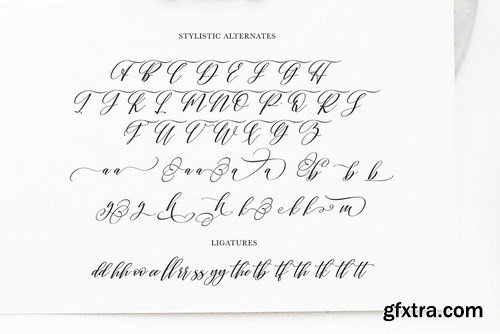 STYLISTIC ALTERNATES
A B C D E F G H
I J K L M N O P Q R S
T U V W X Y Z
a a a a a a a b b b
g g h h h k k m
LIGATURES
dd hh oo ee ll rr ss yy the tb tf th tk tl tt
gfxtra.com